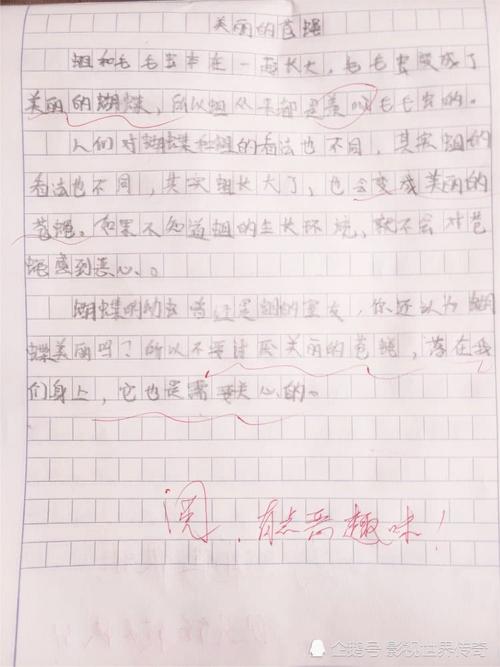 美丽的苍蝇
蛆和毛毛虫本在一起长大，毛毛虫变成了
美丽的蝴蝶，所以蛆从来都是羡叫毛毛虫的。
人们对蝴蝶和蛆的看法也不同，其实蛆的
看法也不同，其实蛆长大了，也会变成美丽的
苍蝇。如果不知道蛆的生长环境，就不会对苍
蝇感到恶心。
蝴蝶的幼虫曾经是蛆的室友，你还认为蝴
蝶美丽吗？所以不要讨厌美丽的苍蝇，落在我
们身上，它也是需要关心的。
阅，有点恶趣味！
企鹅号 影视世界传奇